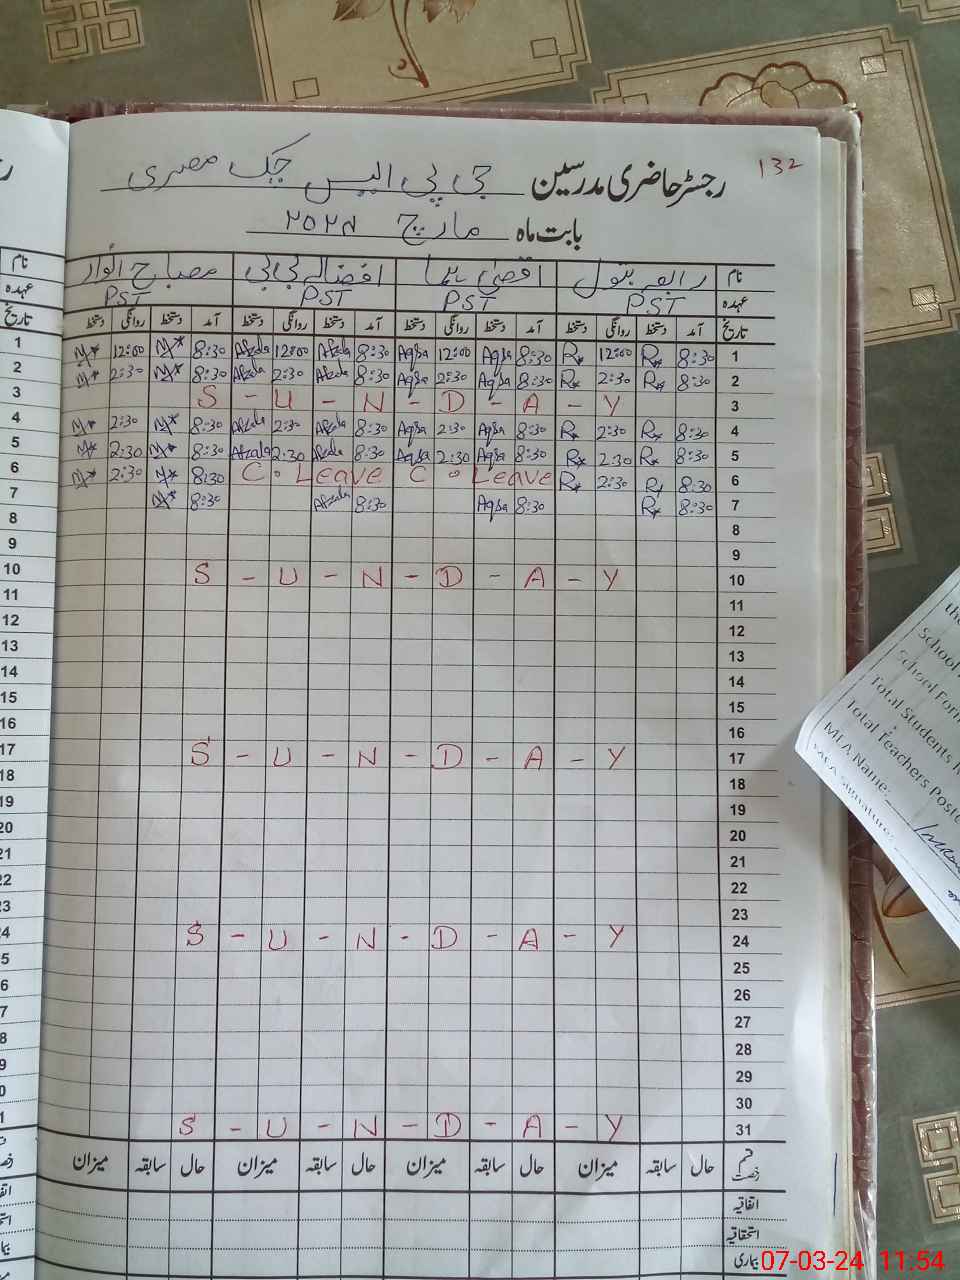 132
رجسٹر حاضری مدرسین جی پی ایس چک مصری
بابت ماہ مارچ ٢٥٢٤
نام رابعہ بتول اقصیٰ افضالہ بی بی مصباح انوار
عہدہ PST PST PST PST
تاریخ آمد دستخط روانگی دستخط آمد دستخط روانگی دستخط آمد دستخط روانگی دستخط آمد دستخط روانگی دستخط تاریخ
1 12:00 8:30 Afzala 12:00 Afzala 8:30 Aqsa 12:00 Aqsa 8:30 R* 12:00 R* 8:30 1
2 2:30 8:30 Afzala 2:30 Afzala 8:30 Aqsa 2:30 Aqsa 8:30 R* 2:30 R* 8:30 2
3 S - U - N - D - A - Y 3
4 2:30 8:30 Afzala 2:30 Afzala 8:30 Aqsa 2:30 Aqsa 8:30 R* 2:30 R* 8:30 4
5 2:30 8:30 Afzala 2:30 Afzala 8:30 Aqsa 2:30 Aqsa 8:30 R* 2:30 R* 8:30 5
6 2:30 8:30 C. Leave C. Leave R* 2:30 R* 8:30 6
7 8:30 Afzala 8:30 Aqsa 8:30 R* 8:30 7
8 8
9 9
10 S - U - N - D - A - Y 10
11 11
12 12
13 13
14 14
15 15
16 16
17 S - U - N - D - A - Y 17
18 18
19 19
20 20
21 21
22 22
23 23
24 S - U - N - D - A - Y 24
25 25
26 26
27 27
28 28
29 29
30 30
31 S - U - N - D - A - Y 31
قسم رخصت حال سابقہ میزان حال سابقہ میزان حال سابقہ میزان حال سابقہ میزان
اتفاقیہ
استحقاقیہ
بیماری
School
School Form
Total Students
Total Teachers Poste
MEA Name:
MEA Signature:
07-03-24 11:54